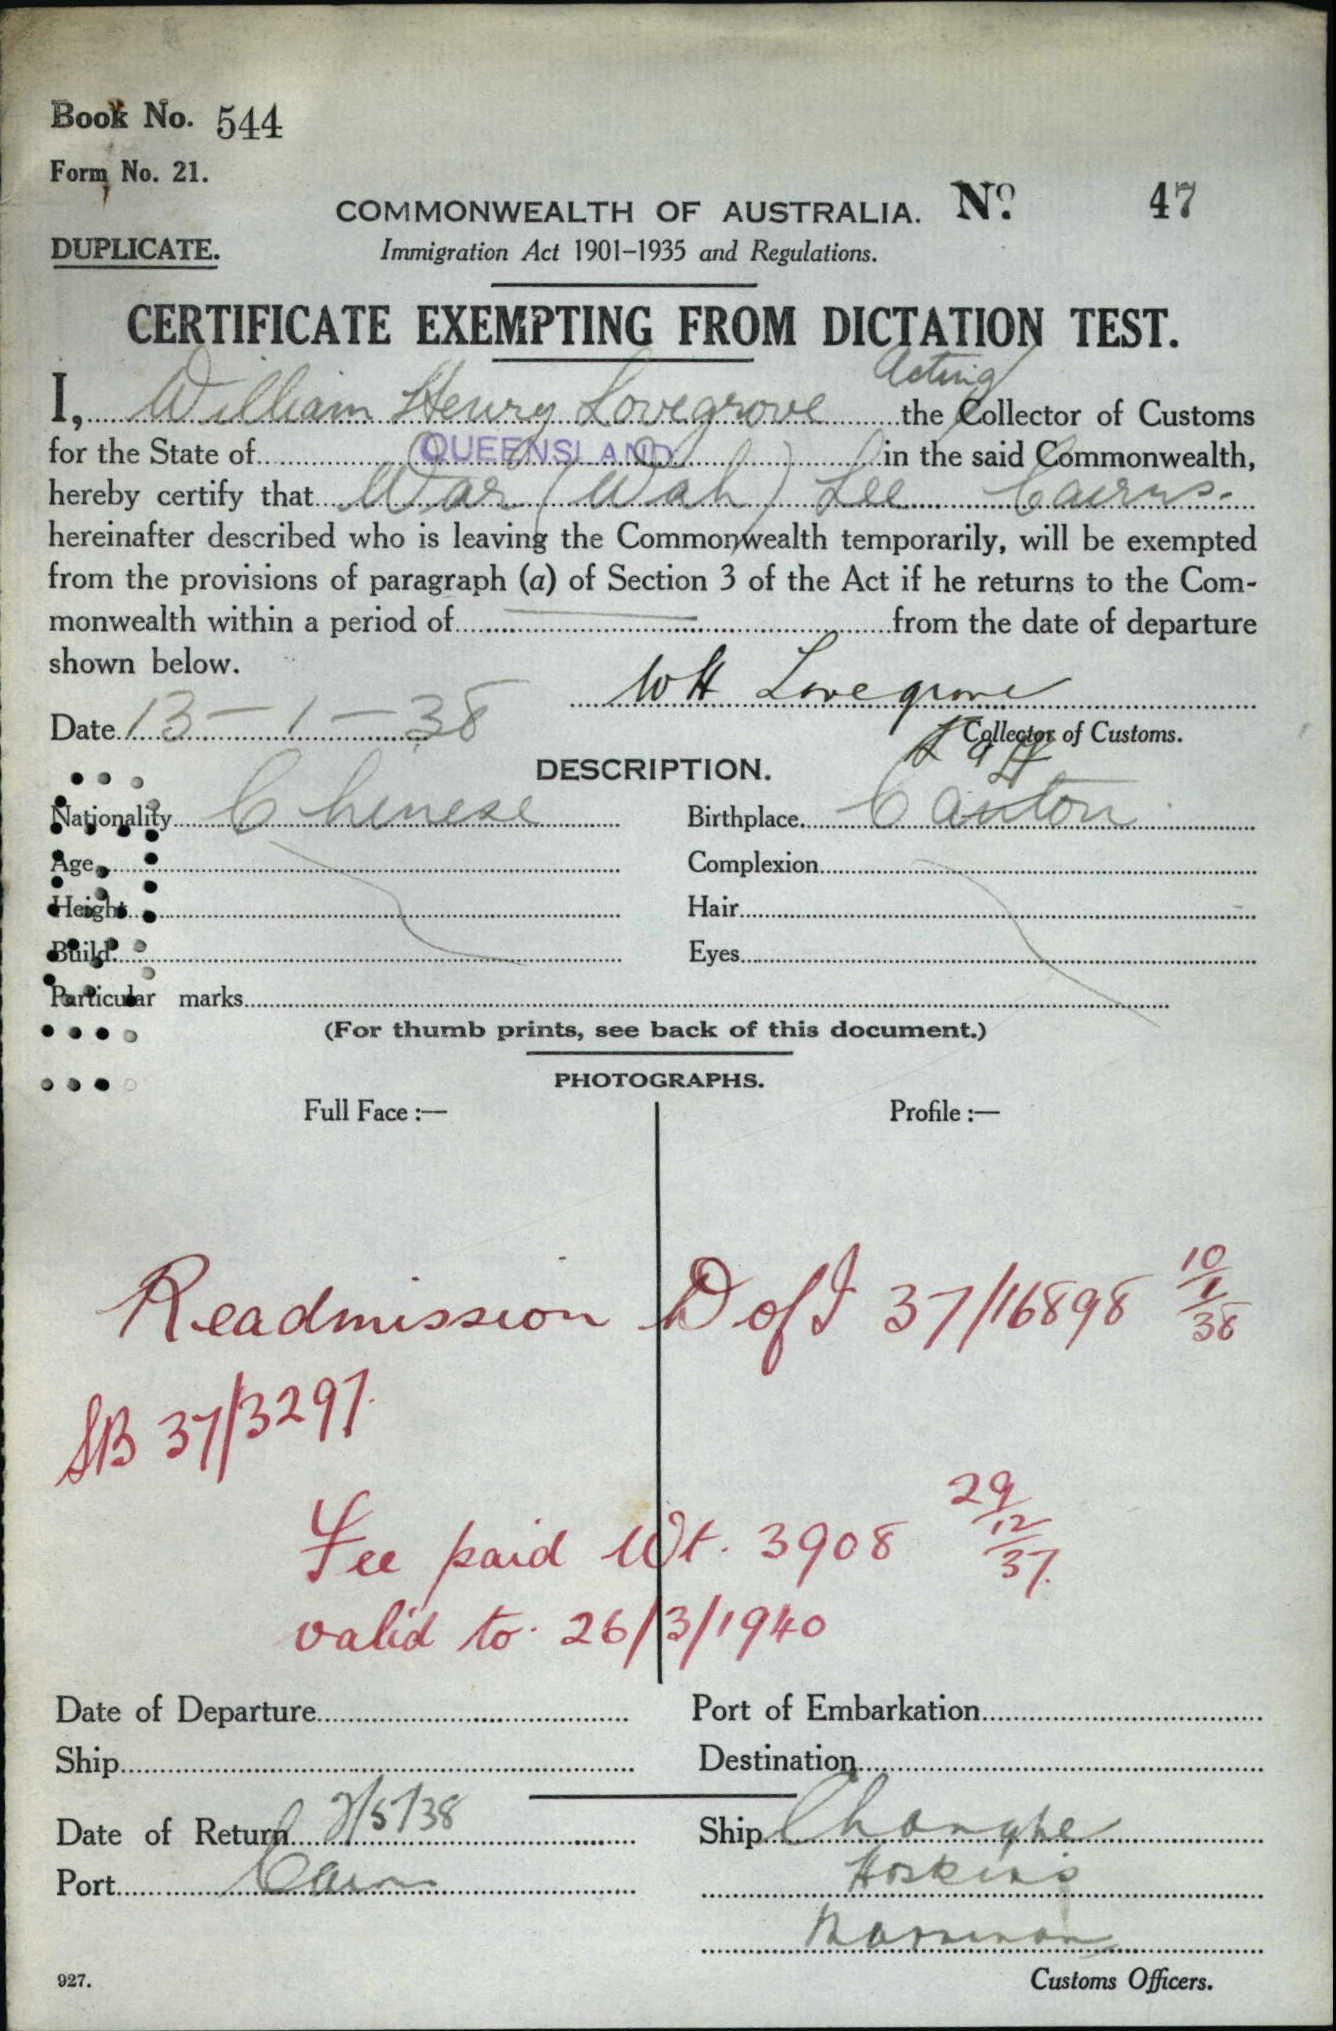 Book No. 544
Form No. 21.
COMMONWEALTH OF AUSTRALIA. No. 47
DUPLICATE. Immigration Act 1901-1935 and Regulations.
CERTIFICATE EXEMPTING FROM DICTATION TEST.
Acting
I, William Henry Lovegrove the Collector of Customs
for the State of QUEENSLAND in the said Commonwealth,
hereby certify that War (Wah) Lee Cairns.
hereinafter described who is leaving the Commonwealth temporarily, will be exempted
from the provisions of paragraph (a) of Section 3 of the Act if he returns to the Com-
monwealth within a period of from the date of departure
shown below.
WH Lovegrove
Date 13-1-38 Collector of Customs.
DESCRIPTION.
Nationality Chinese Birthplace Canton
Age Complexion
Height Hair
Build Eyes
Particular marks
(For thumb prints, see back of this document.)
PHOTOGRAPHS.
Full Face :— Profile :—
Readmission D of I 37/16898 10/1/38
SB 37/3297.
Fee paid Wt. 3908 29/12/37.
valid to 26/3/1940
Date of Departure Port of Embarkation
Ship Destination
Date of Return 2/5/38 Ship Changte
Port Cairns Hoskins
927. Customs Officers.